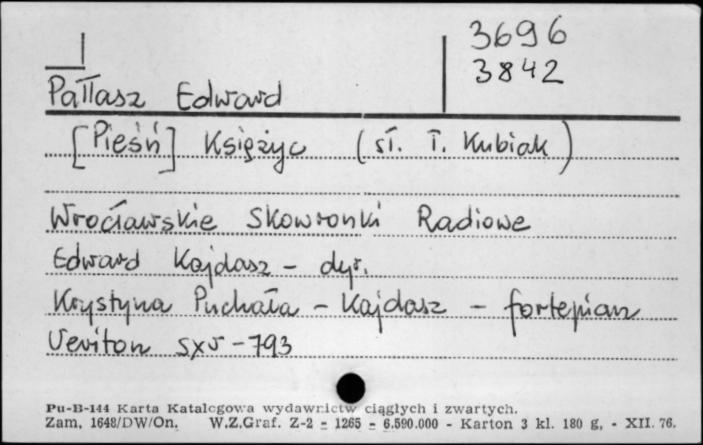 3696
3842
Pałłasz Edward
[Pieśń] Księżyc (sł. T. Kubiak)
Wrocławskie Skowronki Radiowe
Edward Kajdasz - dyr.
Krystyna Puchała - Kajdasz - fortepian
Veriton SXV-793
Pu-B-144 Karta Katalogowa wydawnictw ciągłych i zwartych.
Zam. 1648/DW/On. W.Z.Graf. Z-2 - 1265 - 6.590.000 - Karton 3 kl. 180 g, - XII. 76.